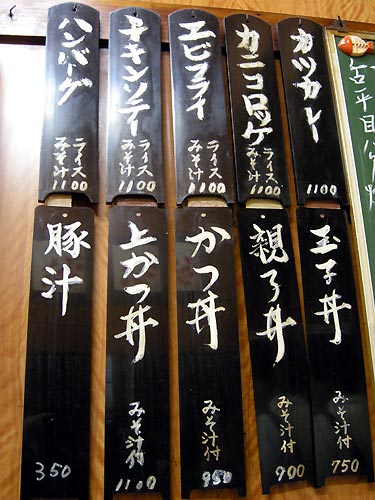 カツカレー
1100
カニコロッケ
ライス
みそ汁
1100
エビフライ
ライス
みそ汁
1100
チキンソテー
ライス
みそ汁
1100
ハンバーグ
ライス
みそ汁
1100
玉子丼
みそ汁付
750
親子丼
みそ汁付
900
かつ丼
みそ汁付
950
上かつ丼
みそ汁付
1100
豚汁
350